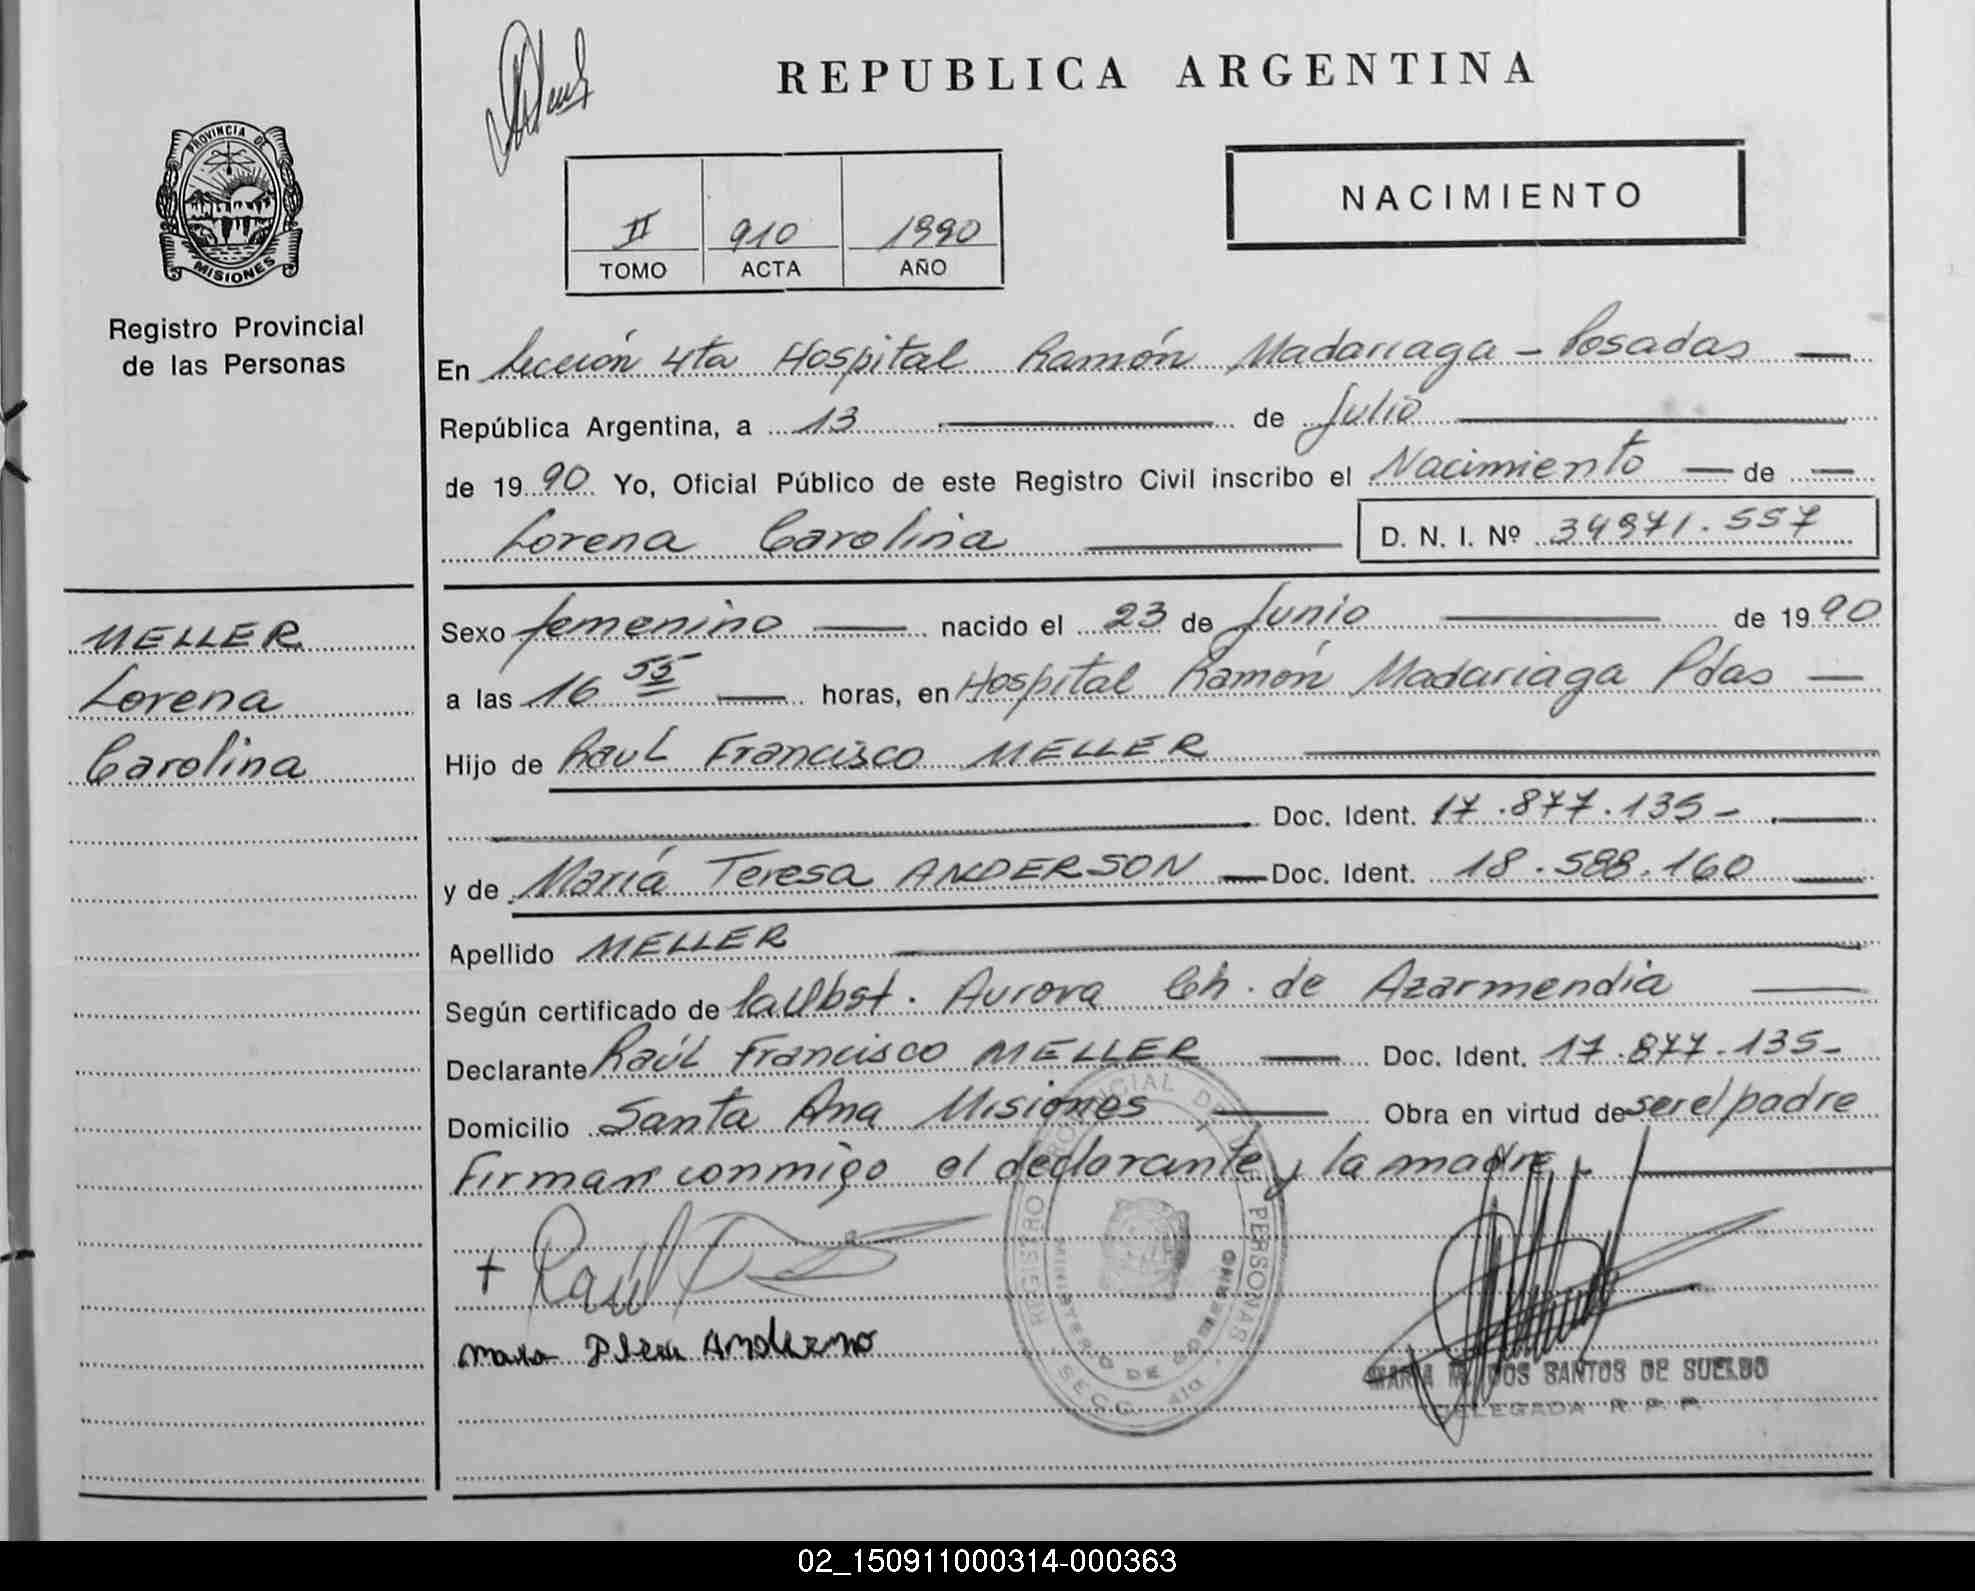 REPUBLICA ARGENTINA
PROVINCIA DE
MISIONES
Registro Provincial
de las Personas
II 910 1990
TOMO ACTA AÑO
NACIMIENTO
En Sección 4ta Hospital Ramón Madariaga - Posadas
República Argentina, a 13 de Julio
de 1990 Yo, Oficial Público de este Registro Civil inscribo el Nacimiento de
Lorena Carolina D. N. I. Nº 34971.557
MELLER
Lorena
Carolina
Sexo femenino nacido el 23 de Junio de 1990
a las 16 55 horas, en Hospital Ramón Madariaga Pdas
Hijo de Raul Francisco MELLER
Doc. Ident. 17.877.135-
y de María Teresa ANDERSON Doc. Ident. 18.588.160
Apellido MELLER
Según certificado de la Obst. Aurora Ch. de Azarmendia
Declarante Raúl Francisco MELLER Doc. Ident. 17.877.135-
Domicilio Santa Ana Misiones Obra en virtud de ser el padre
Firman conmigo el declarante y la madre
Raúl
REGISTRO PROVINCIAL DE LAS PERSONAS
MINISTERIO DE GOBIERNO
SECC. 4ta
MARIA M. DOS SANTOS DE SUELDO
DELEGADA R. P. P.
02_150911000314-000363